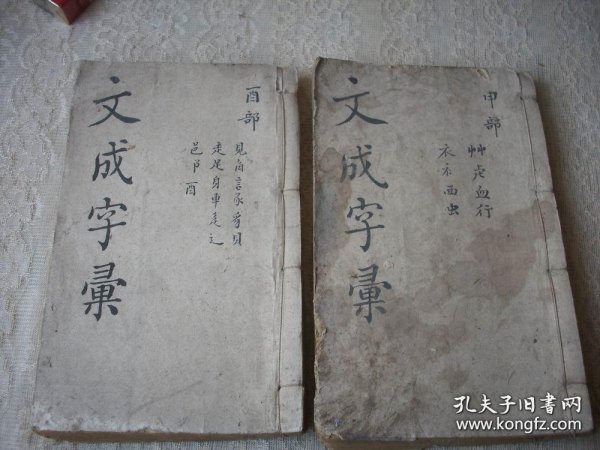 文成字彙
酉部
見角言豕豸貝
走足身車辵辶
邑阝酉
文成字彙
申部
艸虍血行
衣衤西虫
孔夫子旧书网
www.kongfz.com